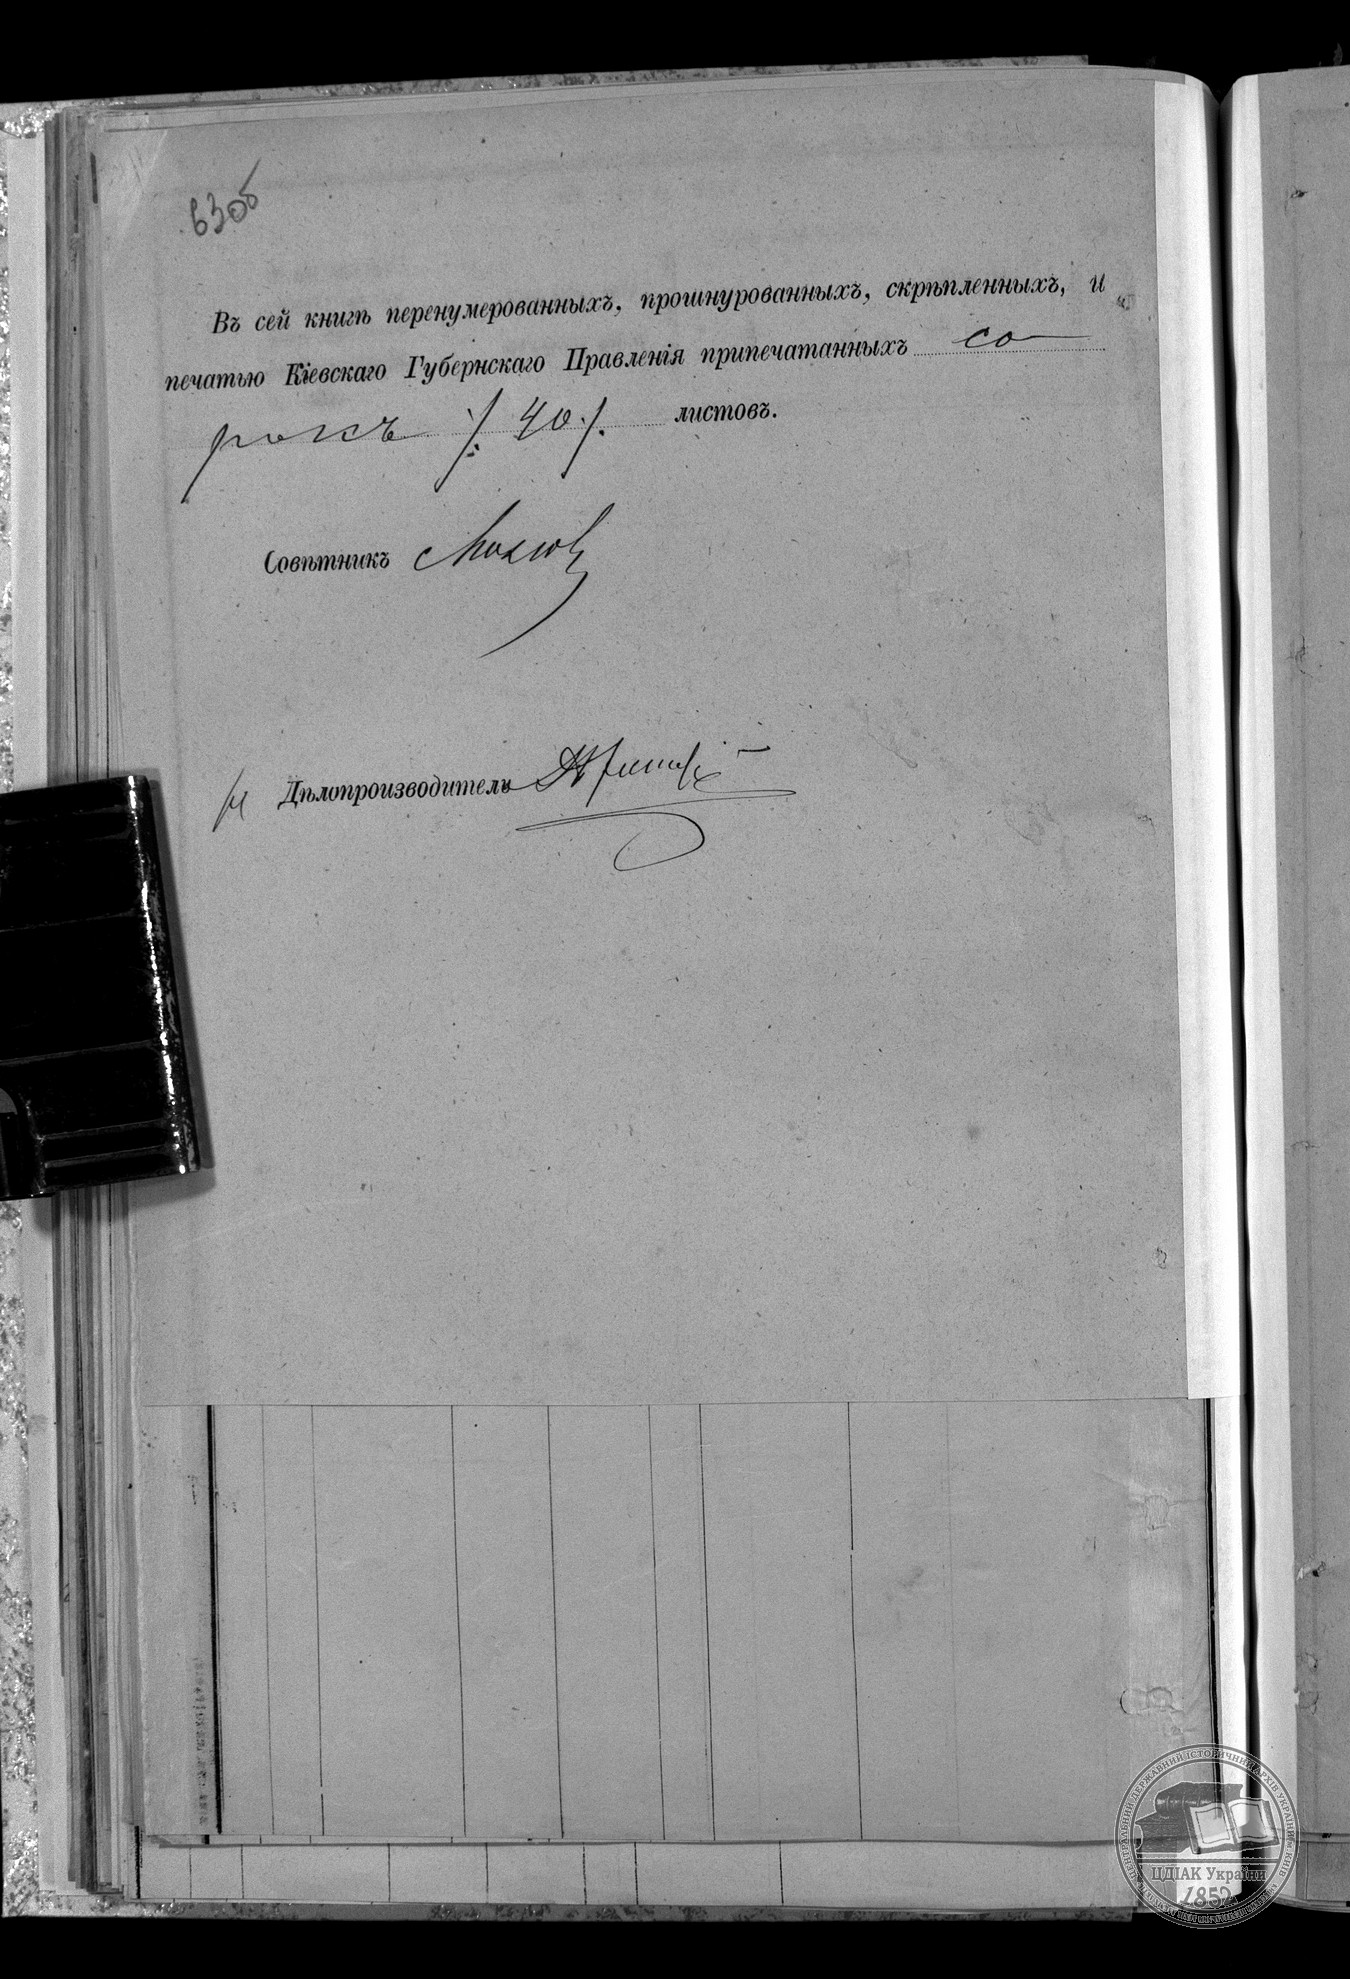 630б
Въ сей книгѣ перенумерованныхъ, прошнурованныхъ, скрѣпленныхъ, и
печатью Кіевскаго Губернскаго Правленія припечатанныхъ со
рокъ /. 40 /. листовъ.
Совѣтникъ
Дѣлопроизводитель
ЦЕНТРАЛЬНИЙ ДЕРЖАВНИЙ ІСТОРИЧНИЙ АРХІВ УКРАЇНИ, м. КИЇВ
ЦДІАК України
1852